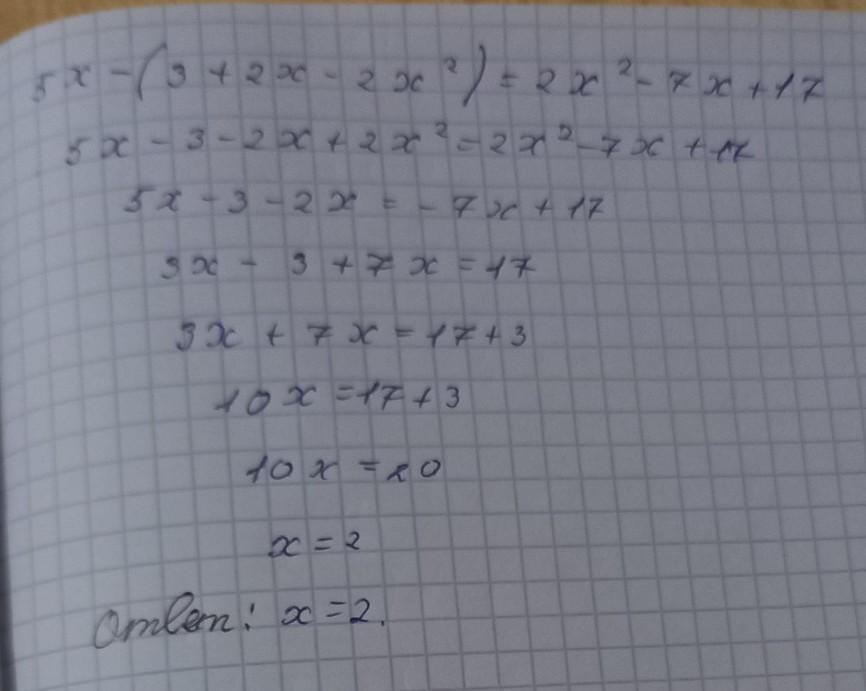 5x - (3 + 2x - 2x²) = 2x² - 7x + 17
5x - 3 - 2x + 2x² = 2x² - 7x + 17
5x - 3 - 2x = - 7x + 17
3x - 3 + 7x = 17
3x + 7x = 17 + 3
10x = 17 + 3
10x = 20
x = 2
Ответ: x = 2.